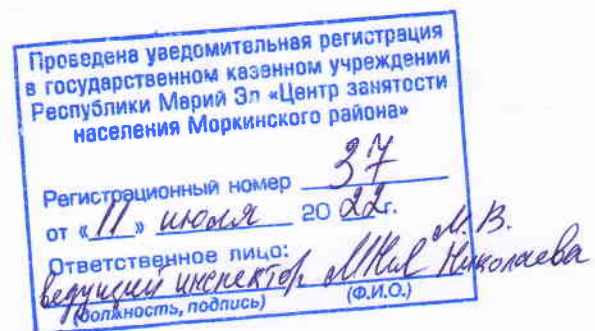 Проведена уведомительная регистрация
в государственном казенном учреждении
Республики Марий Эл «Центр занятости
населения Моркинского района»
Регистрационный номер 37
от «11» июля 2022г.
Ответственное лицо:
ведущий инспектор М. В. Николаева
(должность, подпись) (Ф.И.О.)